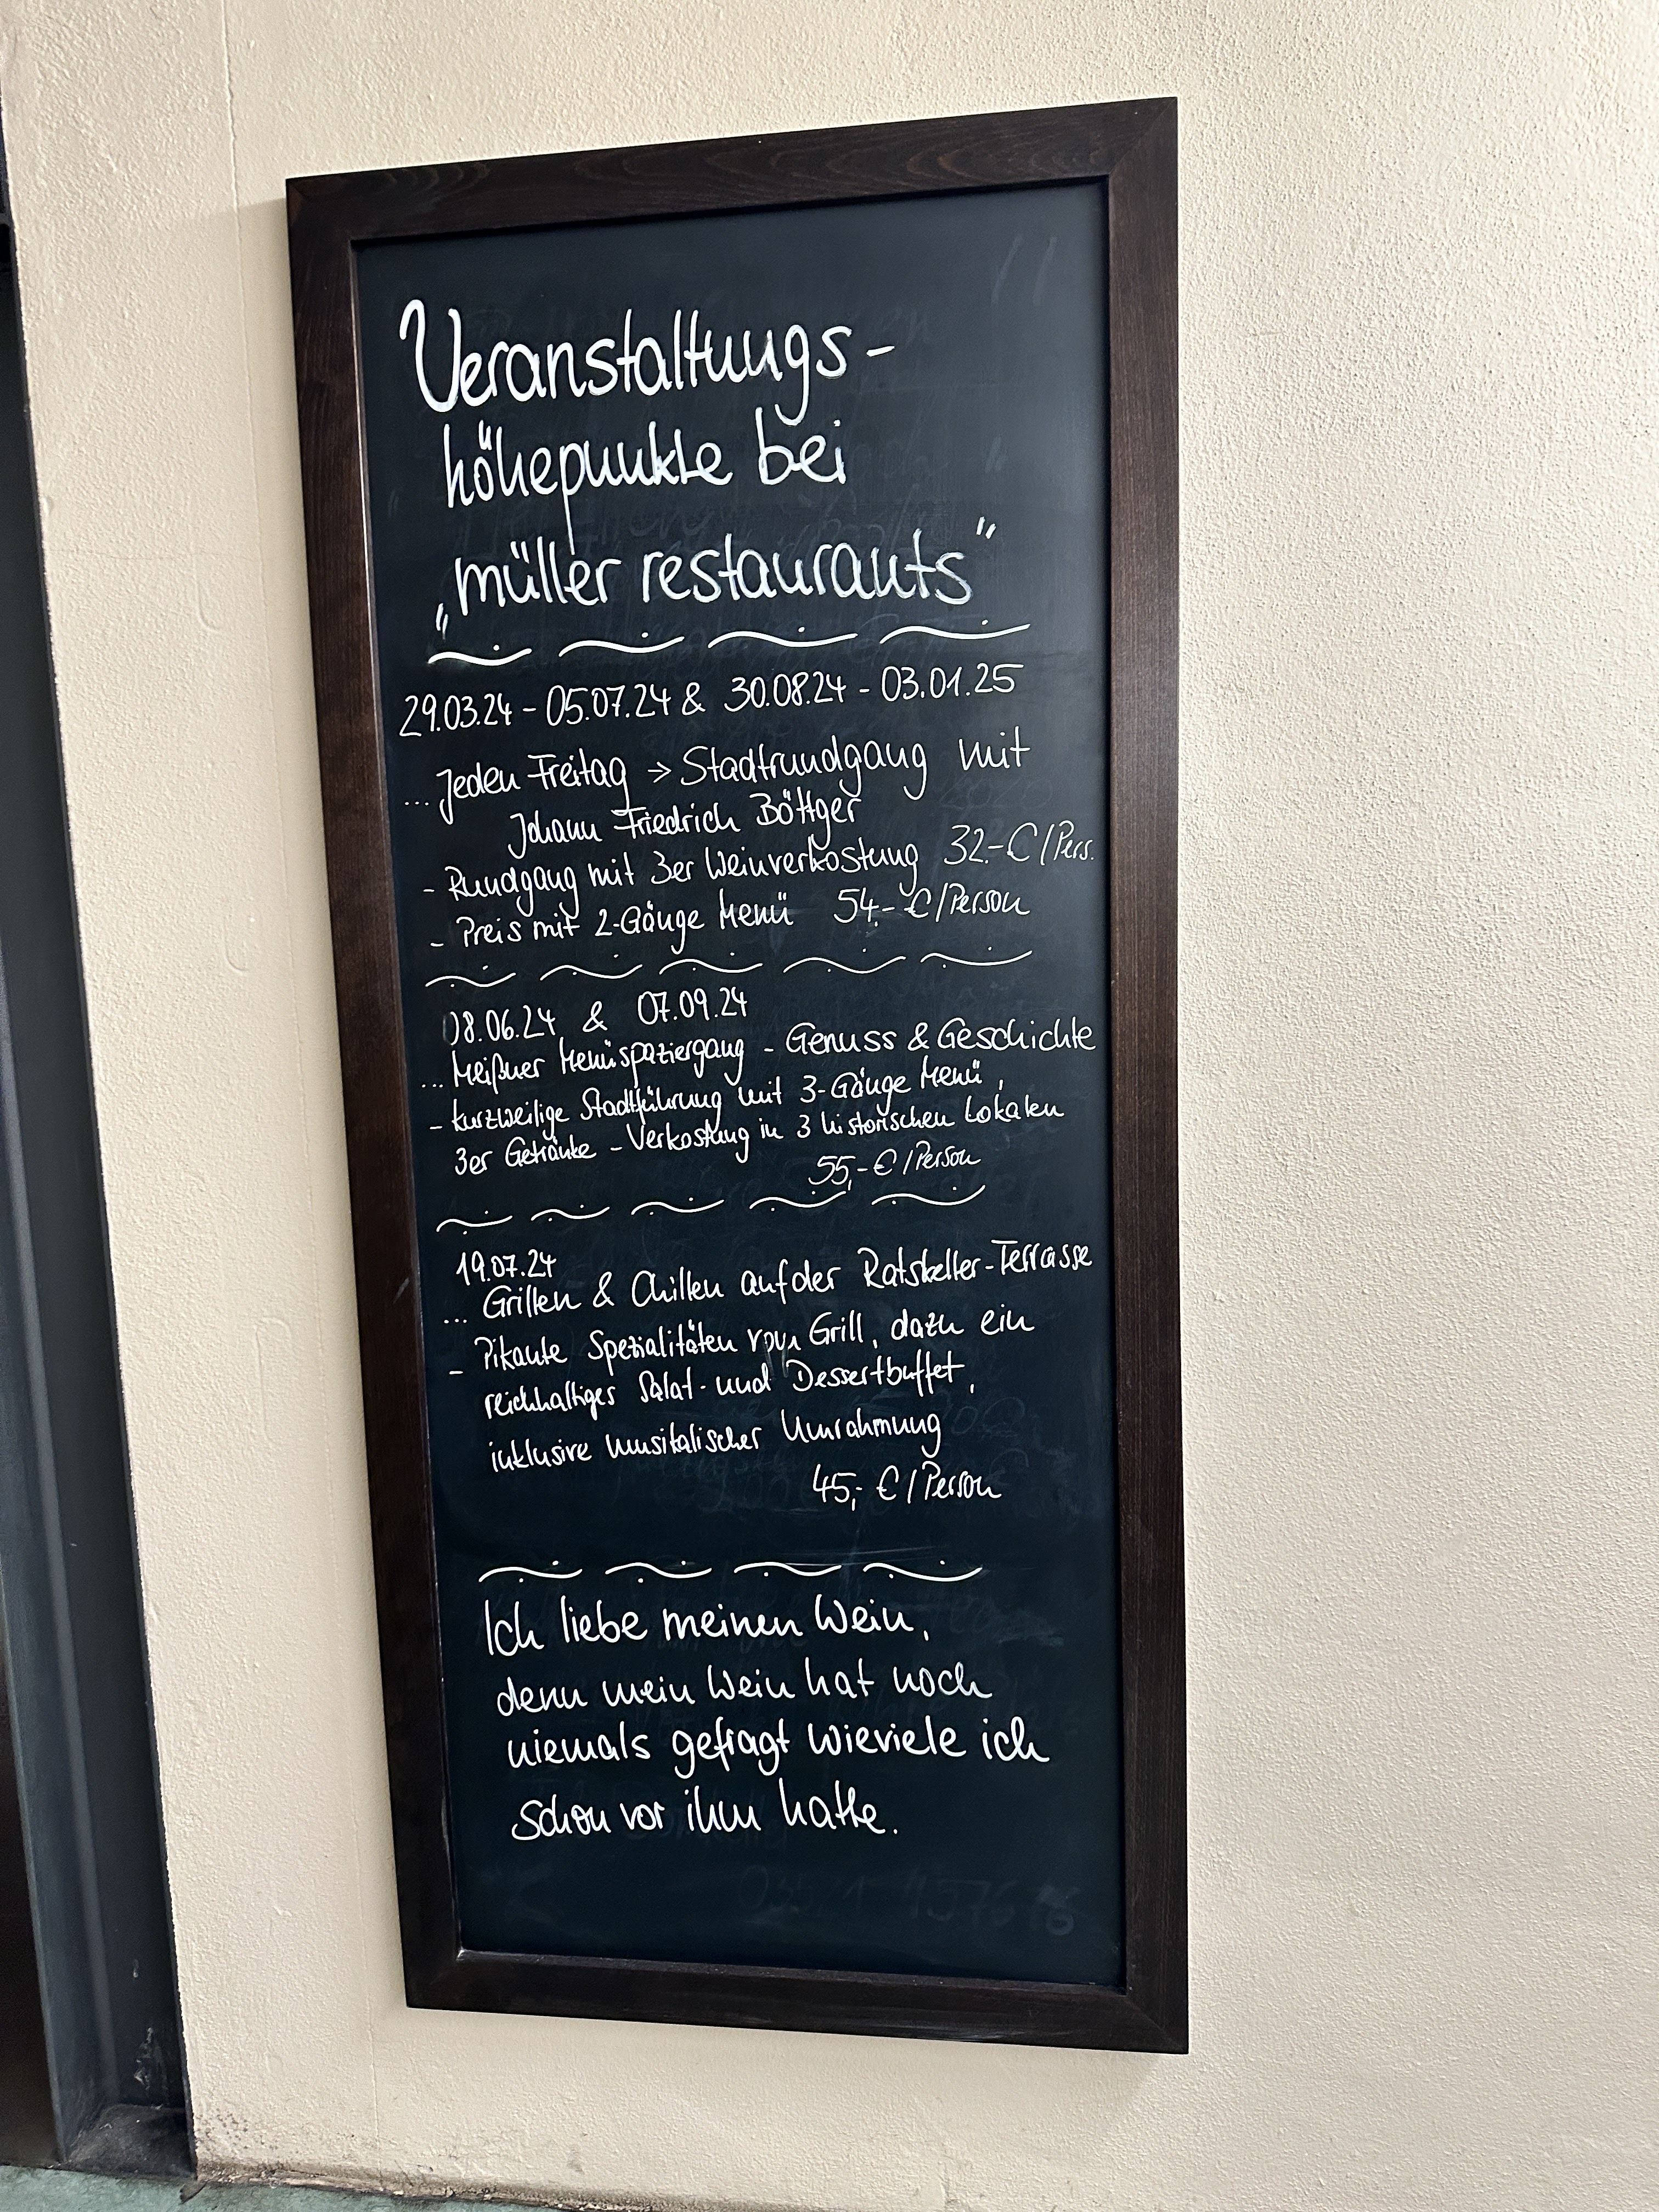 Veranstaltungs-
höhepunkte bei
„müller restaurants"
29.03.24 - 05.07.24 & 30.08.24 - 03.01.25
... Jeden Freitag → Stadtrundgang mit
Johann Friedrich Böttger
- Rundgang mit 3er Weinverkostung 32.-€/Pers.
- Preis mit 2-Gänge Menü 54,-€/Person
08.06.24 & 07.09.24
... Meißner Menüspaziergang - Genuss & Geschichte
- kurzweilige Stadtführung mit 3-Gänge Menü,
3er Getränke - Verkostung in 3 historischen Lokalen
55,-€/Person
19.07.24
... Grillen & Chillen auf der Ratskeller-Terrasse
- Pikante Spezialitäten vom Grill, dazu ein
reichhaltiges Salat- und Dessertbuffet,
inklusive musikalischer Umrahmung
45,- €/Person
Ich liebe meinen Wein,
denn mein Wein hat noch
niemals gefragt wieviele ich
schon vor ihm hatte.